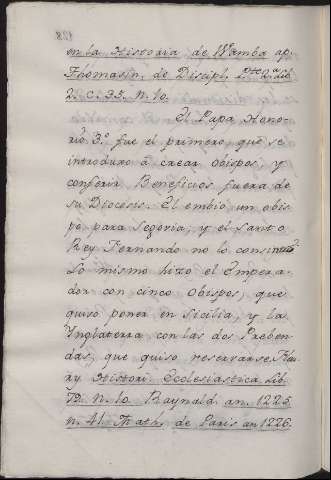 en la Historia de Wamba ap.
Thomasin. de Discipl. Pte. 2.a Lib.
2. c. 35. n. 10.
El Papa Hono-
rio 3.º fue el primero, que se
introduxo à crear Obispos, y
conferir Beneficios fuera de
su Diocesis. El embio un obis-
po para Segovia, y el Santo
Rey Fernando no lo consintio.
Lo mismo hizo el Empera-
dor con cinco Obispos, que
quiso poner en Sicilia, y la
Ynglaterra con las dos Preben-
das, que quiso reservarse. Fleu-
ry Histori. Ecclesiastica Lib.
79. n. 10. Raynald. an. 1225.
n. 41. Math. de Paris an 1226.